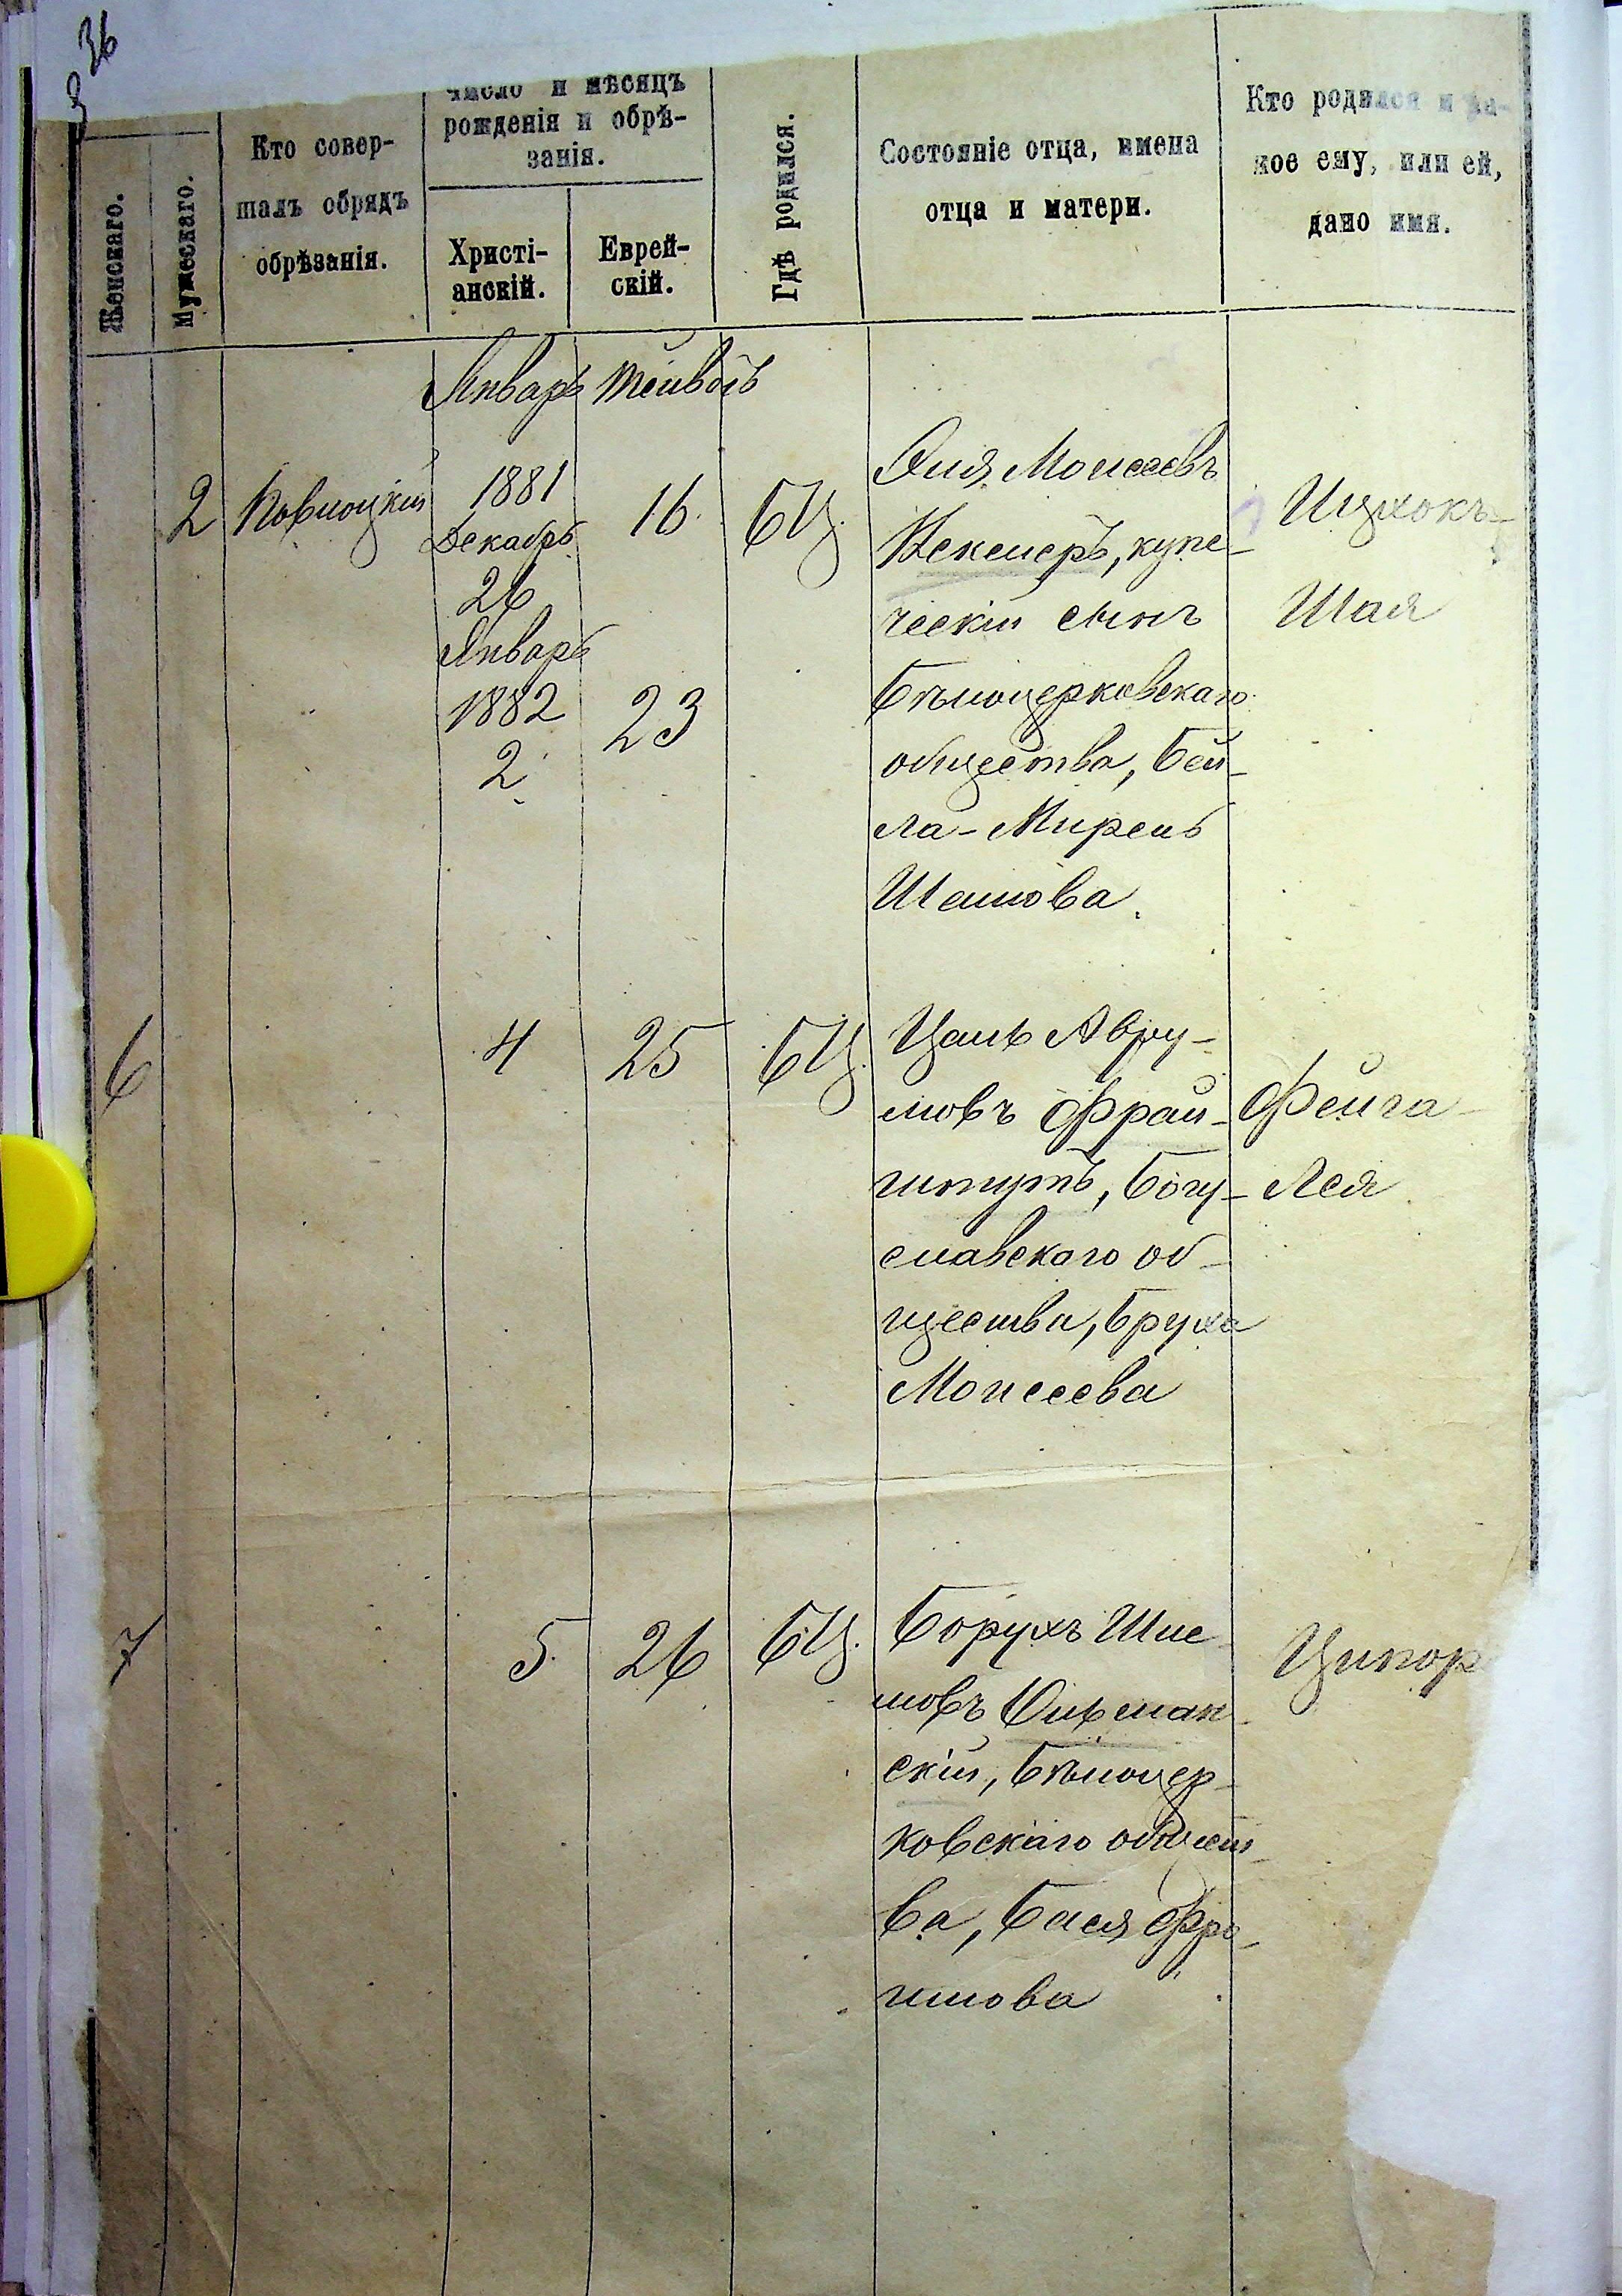 36
3
Женскаго.
Мужескаго.
Кто совер-
шалъ обрядъ
обрѣзанія.
Число и мѣсяцъ
рожденія и обрѣ-
занія.
Христі-
анскій.
Еврей-
скій.
Гдѣ родился.
Состояніе отца, имена
отца и матери.
Кто родился и ка-
кое ему, или ей,
дано имя.
Январь Тейвось
2
1881
Декабрь
26
Январь
1882
2
16
23
БЦ.
Моисеевъ
купе-
ческій сынъ
Бѣлоцерковскаго
общества, Бей-
ла-Мирель
Ицхокъ-
Шая
6
4
25
БЦ.
Цаль Авру-
мовъ Фрай-
штутъ, Богу-
славскаго об-
щества, Бруха
Моисеева
Фейга-
Лея
7
5
26
БЦ.
Борухъ Шле-
мовъ Ольман-
скій, Бѣлоцер-
ковскаго общест-
ва, Бася Фро-
имова
Ципор